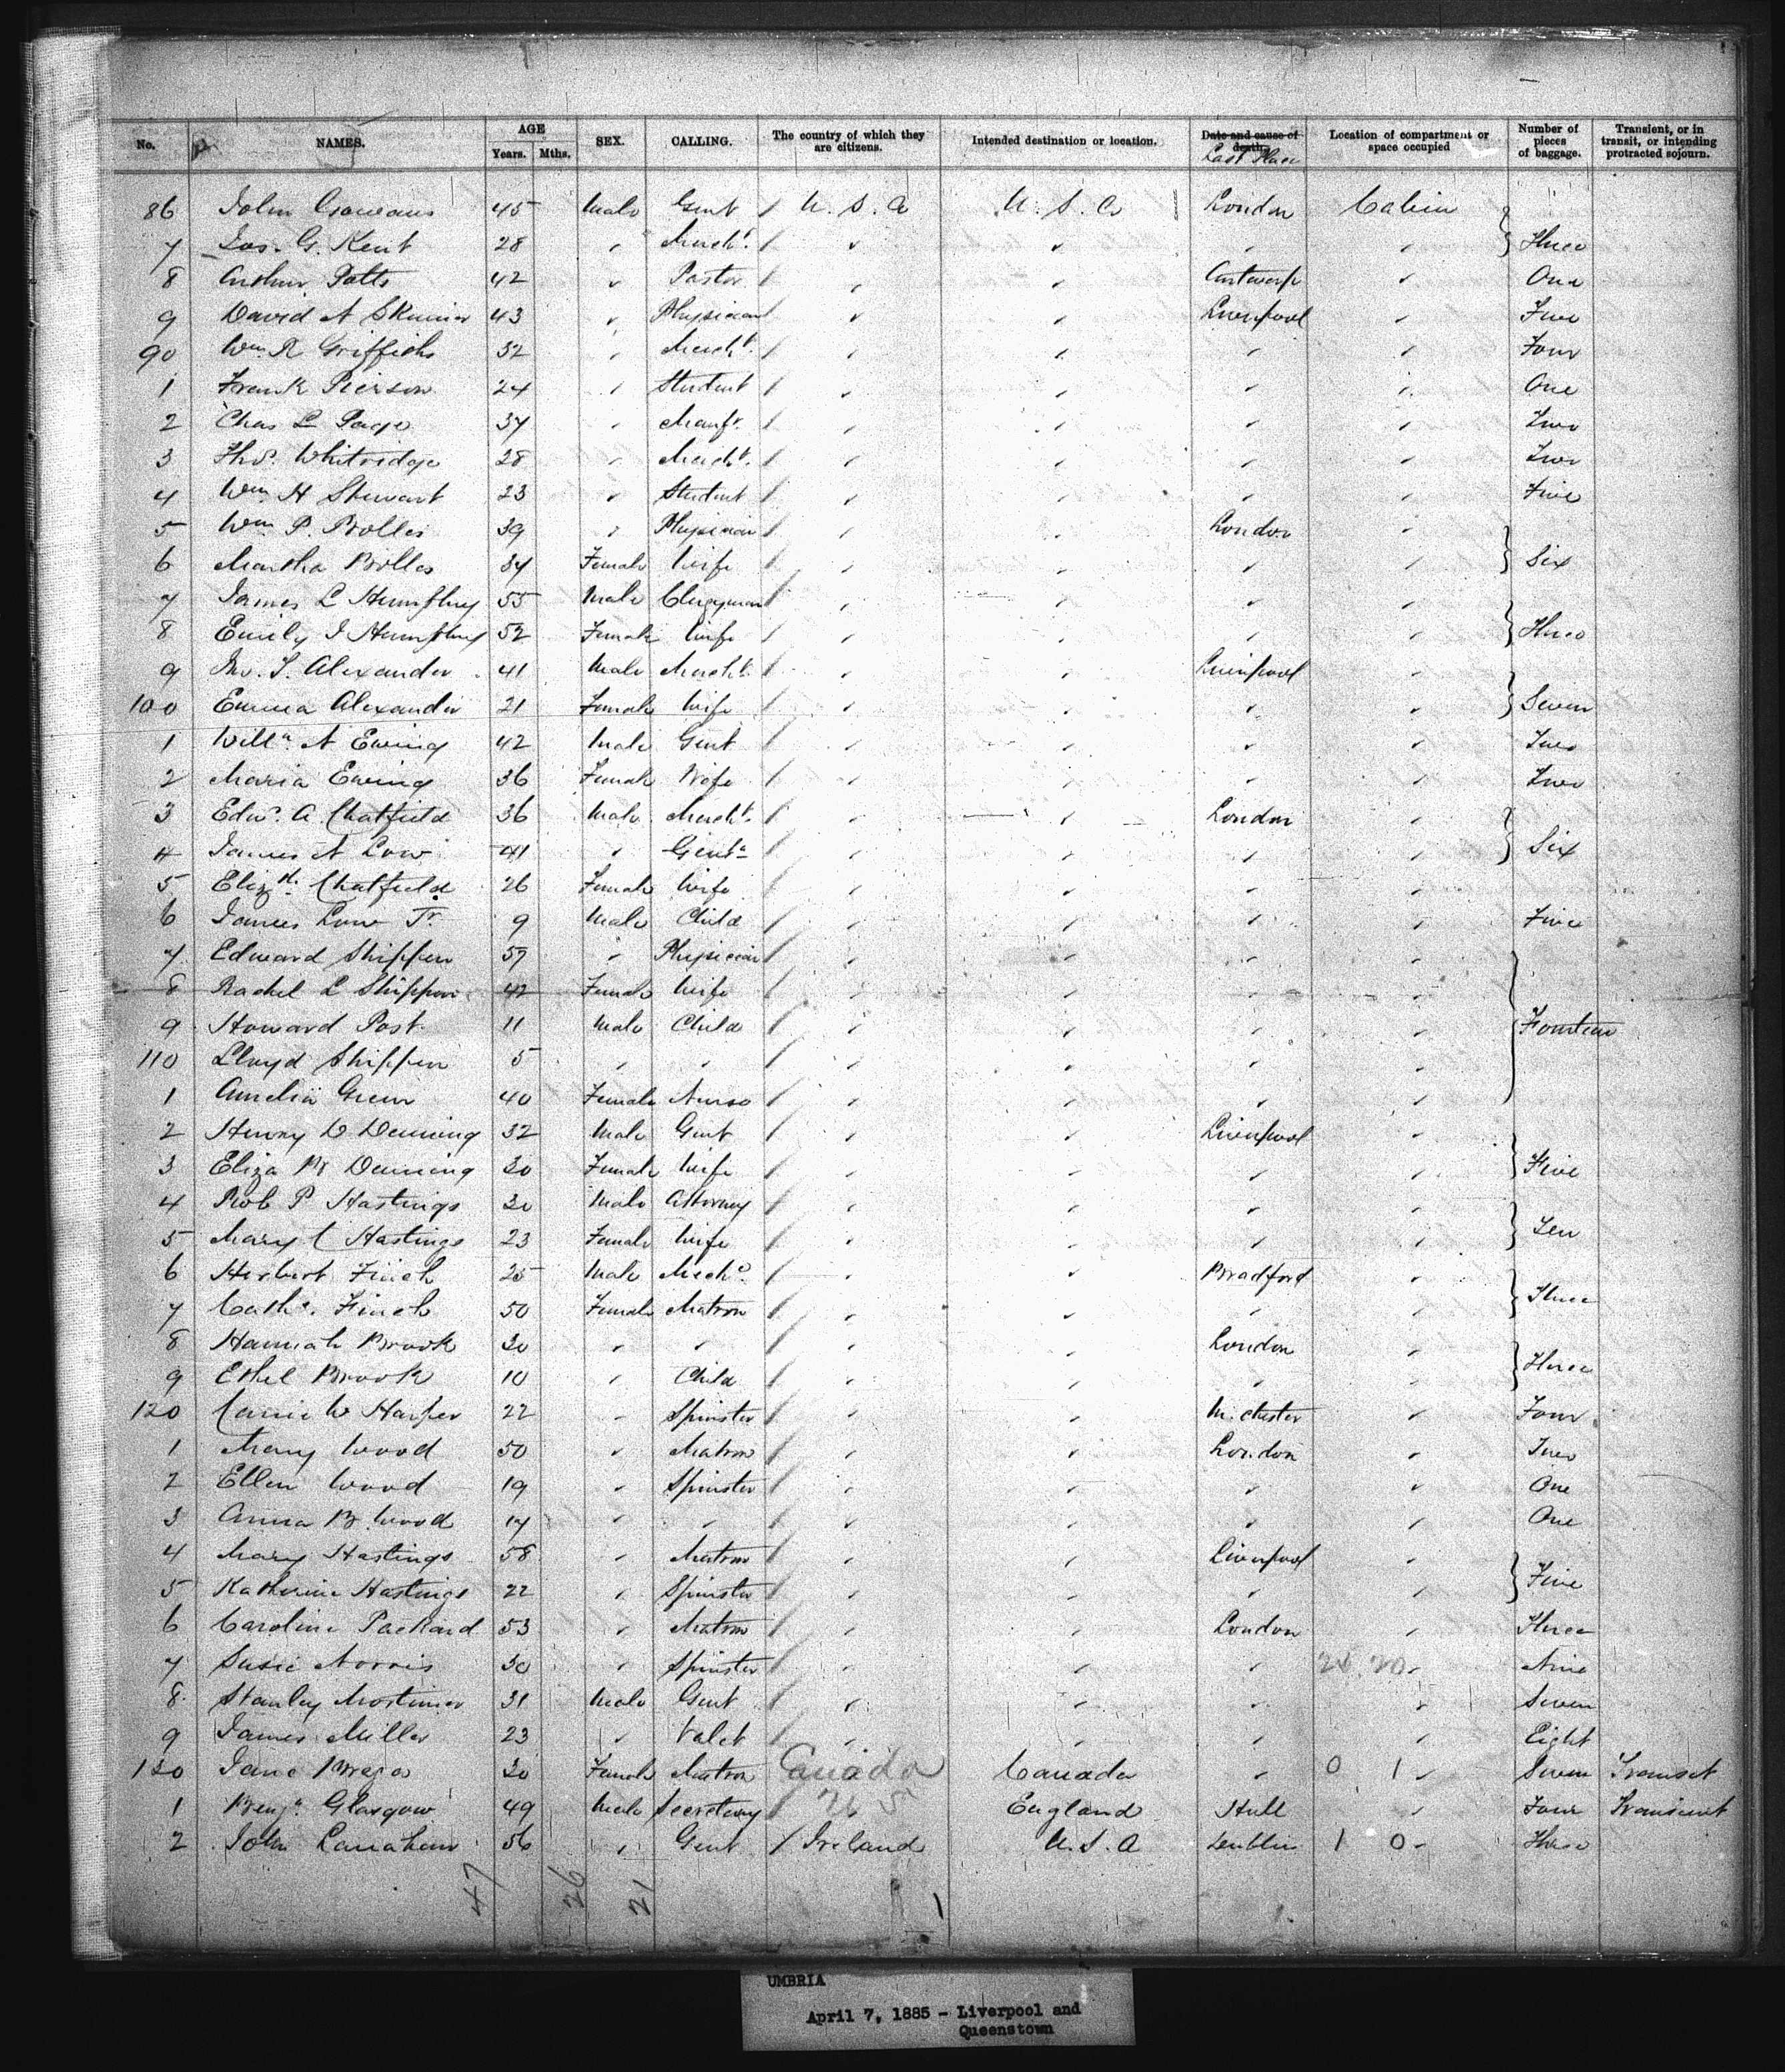 No. NAMES. AGE Years. Mths. SEX. CALLING. The country of which they are citizens. Intended destination or location. Date and cause of death. Last Place Location of compartment or space occupied Number of pieces of baggage. Transient, or in transit, or intending protracted sojourn.
86 John 45 Male Gent U. S. A U. S. A London Cabin
7 Jos. G. Kent 28 " Mercht. " " " " Three
8 Arthur Potts 42 " Pastor " " Antwerp " One
9 David A Skinner 43 " Physician " " Liverpool " Two
90 Wm R Griffiths 32 " Mercht. " " " " Four
1 Frank Pierson 24 " Student " " " " One
2 Chas L Page 37 " Manfr. " " " " Two
3 Thos. Whitridge 28 " Mercht. " " " " Two
4 Wm H Stewart 23 " Student " " " " Five
5 Wm P. Bolles 39 " Physician " " London "
6 Martha Bolles 34 Female Wife " " " " Six
7 James L Humphrey 55 Male Clergyman " " " "
8 Emily J Humphrey 52 Female Wife " " " " Three
9 Jno. S. Alexander 41 Male Mercht. " " Liverpool "
100 Emma Alexander 21 Female Wife " " " " Seven
1 Willm A Ewing 42 Male Gent " " " " Two
2 Maria Ewing 36 Female Wife " " " " Two
3 Edwd. A. Chatfield 36 Male Mercht. " " London "
4 James A Low 41 " Gent " " " " Six
5 Elizth. Chatfield 26 Female Wife " " " "
6 James Low Jr. 9 Male Child " " " " Five
7 Edward Shippen 57 " Physician " " " "
8 Rachel L Shippen 42 Female Wife " " " "
9 Howard Post 11 Male Child " " " " Fourteen
110 Lloyd Shippen 5 " " " " " "
1 Amelia Green 40 Female Nurse " " " "
2 Henry D Deming 32 Male Gent " " Liverpool "
3 Eliza B Deming 30 Female Wife " " " " Five
4 Rob P Hastings 30 Male Attorney " " " "
5 Mary C Hastings 23 Female Wife " " " " Ten
6 Herbert Finch 25 Male Mechc. " " Bradford "
7 Cathe. Finch 50 Female Matron " " " " Three
8 Hannah Brook 30 " " " " London "
9 Ethel Brook 10 " Child " " " " Three
120 Carrie W Harper 22 " Spinster " " M. chester " Four
1 Mary Wood 50 " Matron " " London " Two
2 Ellen Wood 19 " Spinster " " " " One
3 Anna B. Wood 17 " " " " " " One
4 Mary Hastings 58 " Matron " " Liverpool "
5 Katherine Hastings 22 " Spinster " " " " Five
6 Caroline Packard 53 " Matron " " London " Three
7 Susie Norris 30 " Spinster " " " " Nine
8 Stanley Mortimer 31 Male Gent " " " " Seven
9 James Miller 23 " Valet " " " " Eight
130 Jane 30 Female Matron Canada Canada " 0 1 " Seven Transit
1 Benjn. Glasgow 49 Male Secretary U S England Hull " Four Transient
2 John Lanahan 56 " Gent Ireland U. S. A Dublin 1 0 " Three
47 26 21
UMBRIA
April 7, 1885 - Liverpool and
Queenstown